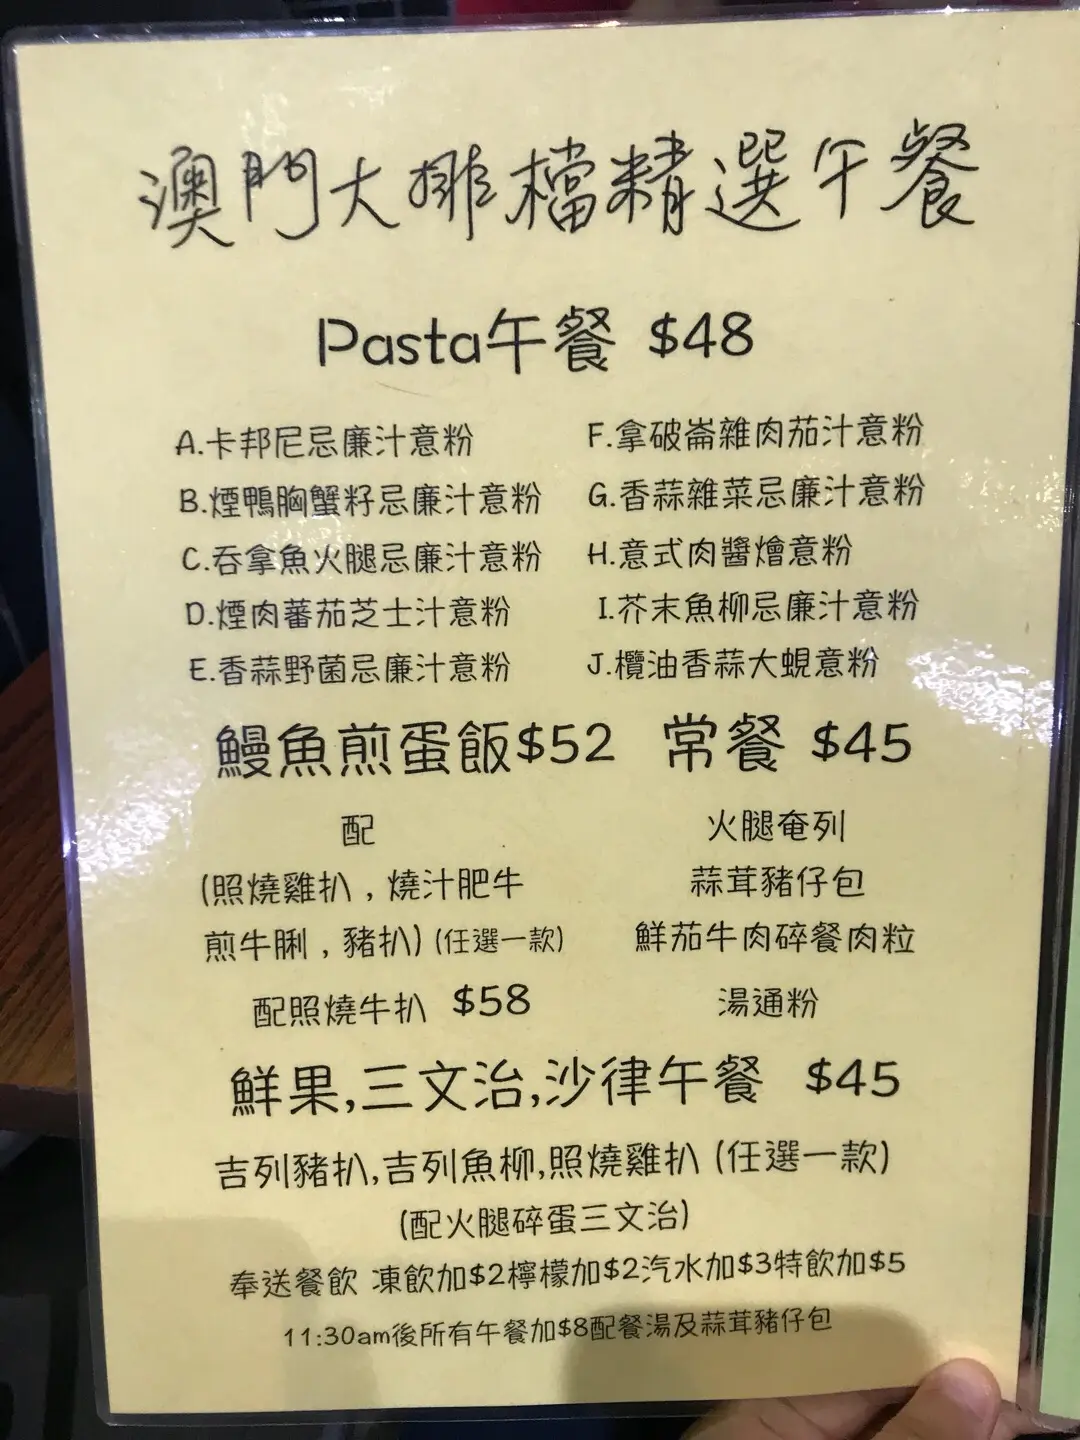 澳門大排檔精選午餐
Pasta午餐 $48
A.卡邦尼忌廉汁意粉
B.煙鴨胸蟹籽忌廉汁意粉
C.吞拿魚火腿忌廉汁意粉
D.煙肉蕃茄芝士汁意粉
E.香蒜野菌忌廉汁意粉
F.拿破崙雜肉茄汁意粉
G.香蒜雜菜忌廉汁意粉
H.意式肉醬燴意粉
I.芥末魚柳忌廉汁意粉
J.欖油香蒜大蜆意粉
鰻魚煎蛋飯$52
配
(照燒雞扒，燒汁肥牛
煎牛脷，豬扒) (任選一款)
配照燒牛扒 $58
常餐 $45
火腿奄列
蒜茸豬仔包
鮮茄牛肉碎餐肉粒
湯通粉
鮮果,三文治,沙律午餐 $45
吉列豬扒,吉列魚柳,照燒雞扒 (任選一款)
(配火腿碎蛋三文治)
奉送餐飲 凍飲加$2檸檬加$2汽水加$3特飲加$5
11:30am後所有午餐加$8配餐湯及蒜茸豬仔包